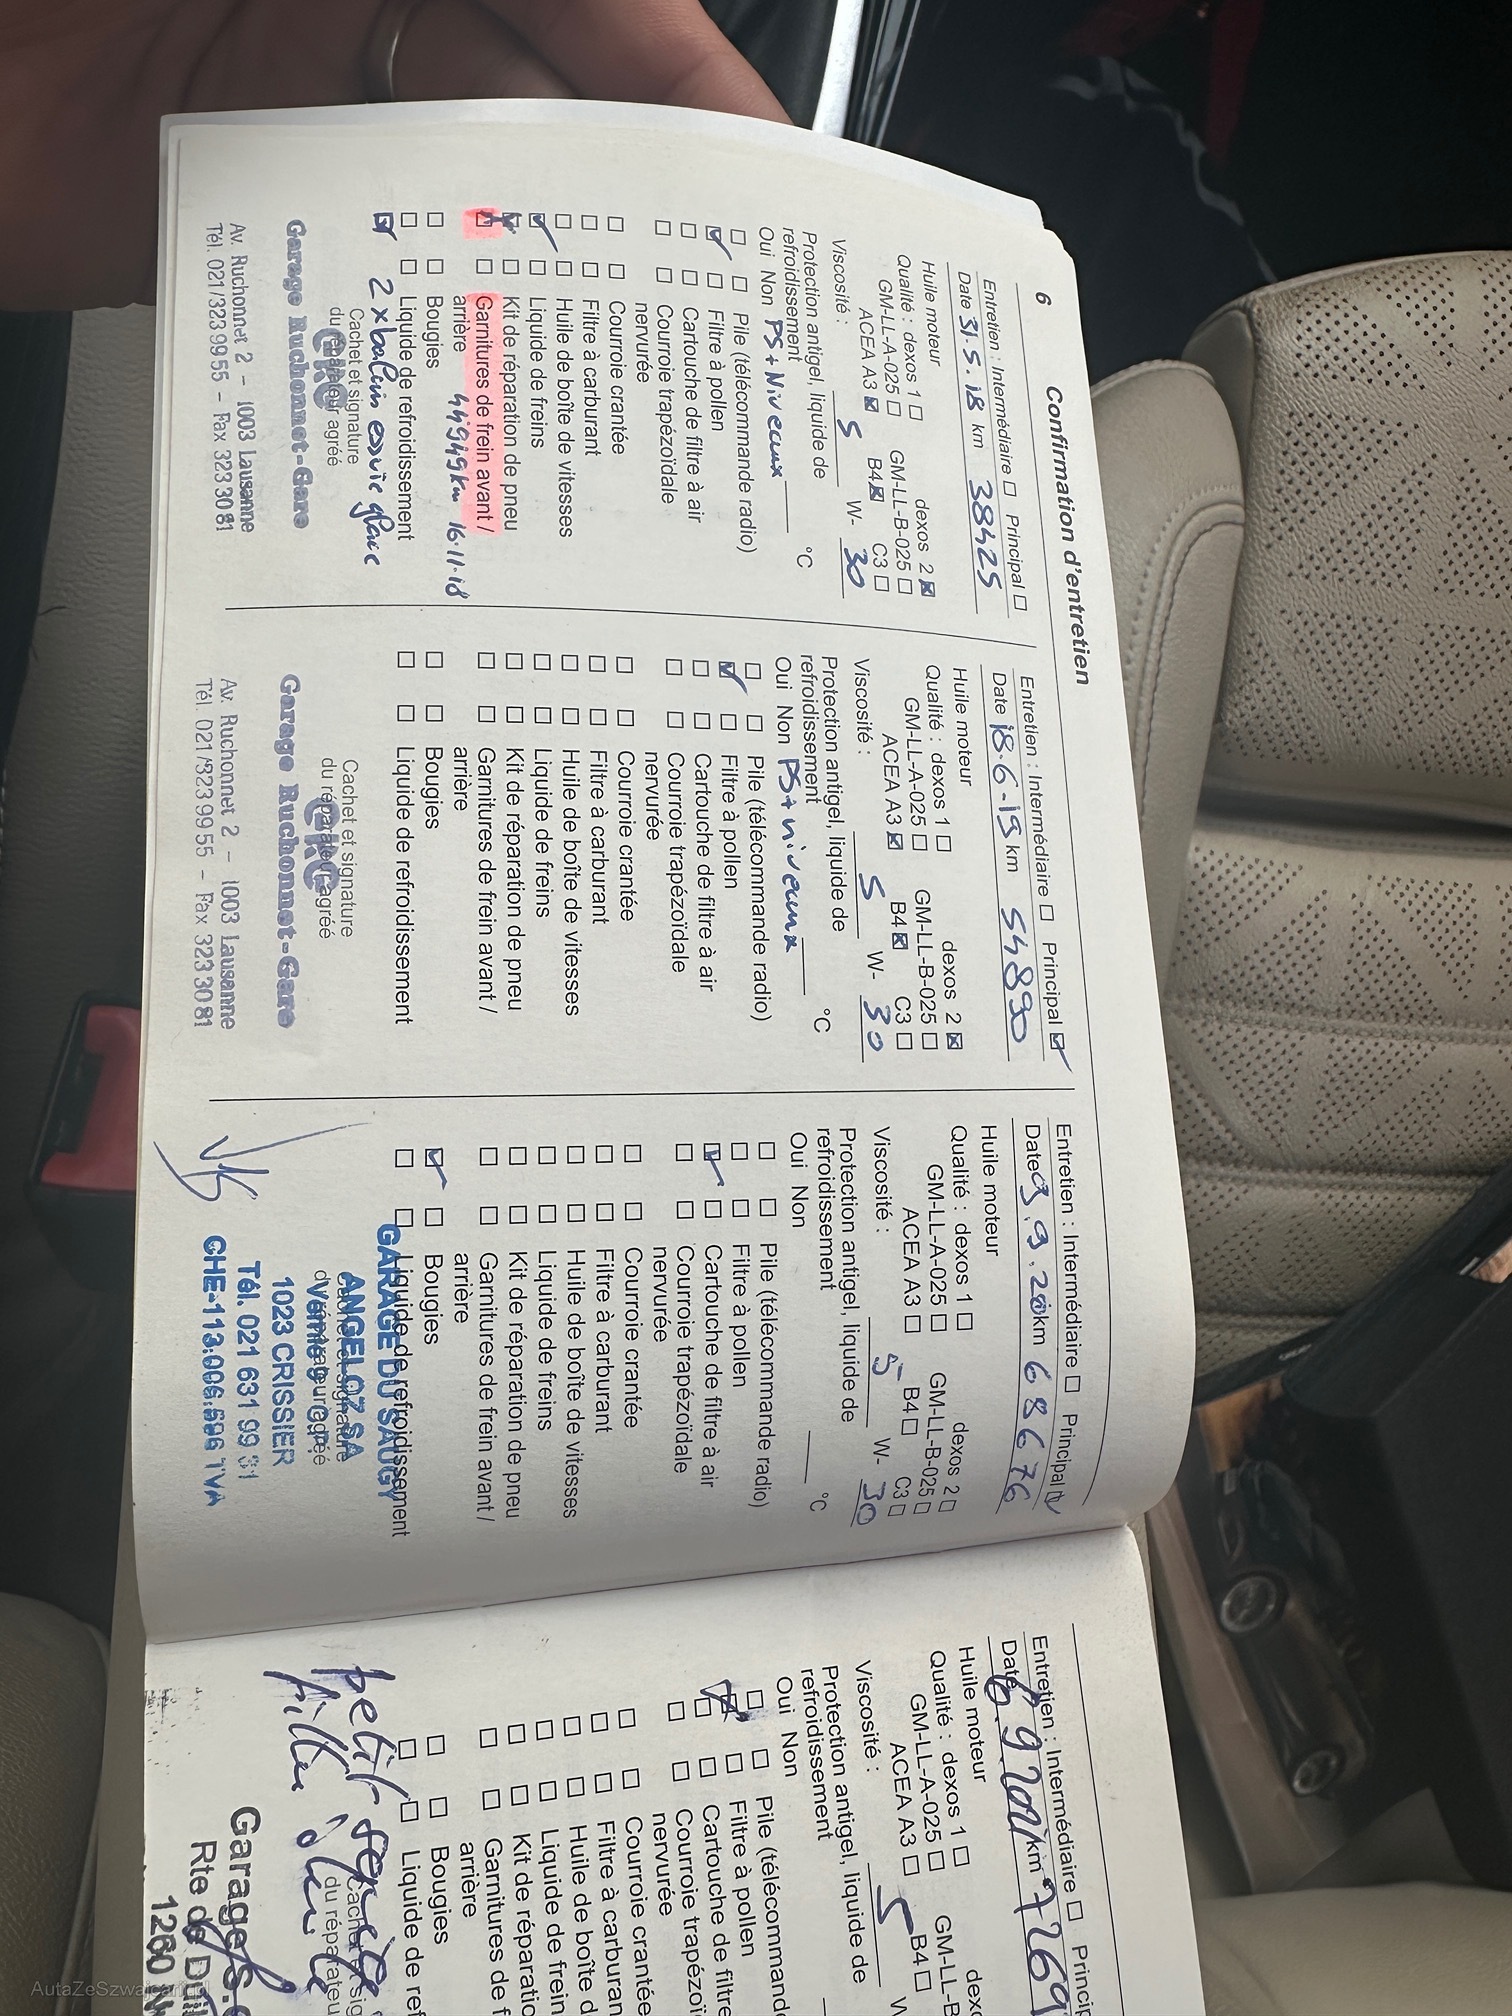 6 Confirmation d'entretien
Entretien : Intermédiaire ☐ Principal ☐
Date 31.5.18 km 38425
Huile moteur
Qualité : dexos 1 ☐ dexos 2 ☒
GM-LL-A-025 ☐ GM-LL-B-025 ☐
ACEA A3 ☒ B4 ☒ C3 ☐
Viscosité : 5 W- 30
Protection antigel, liquide de
refroidissement °C
Oui Non PS + Niveaux
☐ ☐ Pile (télécommande radio)
☑ ☐ Filtre à pollen
☐ ☐ Cartouche de filtre à air
☐ ☐ Courroie trapézoïdale
nervurée
☐ ☐ Courroie crantée
☐ ☐ Filtre à carburant
☐ ☐ Huile de boîte de vitesses
☑ ☐ Liquide de freins
☑ ☐ Kit de réparation de pneu
☑ ☐ Garnitures de frein avant /
arrière 44'949km 16.11.18
☐ ☐ Bougies
☐ ☐ Liquide de refroidissement
☑ 2x balais essuie glace
Cachet et signature
du réparateur agréé
Garage Ruchonnet-Gare
Av. Ruchonnet 2 - 1003 Lausanne
Tél. 021/323 99 55 - Fax 323 30 81
Entretien : Intermédiaire ☐ Principal ☑
Date 18.6.19 km 54890
Huile moteur
Qualité : dexos 1 ☐ dexos 2 ☒
GM-LL-A-025 ☐ GM-LL-B-025 ☐
ACEA A3 ☒ B4 ☒ C3 ☐
Viscosité : 5 W- 30
Protection antigel, liquide de
refroidissement °C
Oui Non PS + niveaux
☐ ☐ Pile (télécommande radio)
☑ ☐ Filtre à pollen
☐ ☐ Cartouche de filtre à air
☐ ☐ Courroie trapézoïdale
nervurée
☐ ☐ Courroie crantée
☐ ☐ Filtre à carburant
☐ ☐ Huile de boîte de vitesses
☐ ☐ Liquide de freins
☐ ☐ Kit de réparation de pneu
☐ ☐ Garnitures de frein avant /
arrière
☐ ☐ Bougies
☐ ☐ Liquide de refroidissement
Cachet et signature
du réparateur agréé
Garage Ruchonnet-Gare
Av. Ruchonnet 2 - 1003 Lausanne
Tél. 021/323 99 55 - Fax 323 30 81
Entretien : Intermédiaire ☐ Principal ☑
Date 03.9.20 km 68676
Huile moteur
Qualité : dexos 1 ☐ dexos 2 ☐
GM-LL-A-025 ☐ GM-LL-B-025 ☐
ACEA A3 ☐ B4 ☐ C3 ☐
Viscosité : 5 W- 30
Protection antigel, liquide de
refroidissement °C
Oui Non
☐ ☐ Pile (télécommande radio)
☐ ☐ Filtre à pollen
☑ ☐ Cartouche de filtre à air
☐ ☐ Courroie trapézoïdale
nervurée
☐ ☐ Courroie crantée
☐ ☐ Filtre à carburant
☐ ☐ Huile de boîte de vitesses
☐ ☐ Liquide de freins
☐ ☐ Kit de réparation de pneu
☐ ☐ Garnitures de frein avant /
arrière
☑ ☐ Bougies
☐ ☐ Liquide de refroidissement
GARAGE DU SAUGY
ANGELOZ SA
1023 CRISSIER
Tél. 021 631 99 31
CHE-113.006.596 TVA
Entretien : Intermédiaire ☐ Princip
Date km
Huile moteur
Qualité : dexos 1 ☐ dexo
GM-LL-A-025 ☐ GM-LL-B
ACEA A3 ☐ B4 ☐
Viscosité : 5 W
Protection antigel, liquide de
refroidissement
Oui Non
☐ ☐ Pile (télécommand
☐ Filtre à pollen
☐ Cartouche de filtre
☐ ☐ Courroie trapézoï
nervurée
☐ ☐ Courroie crantée
☐ ☐ Filtre à carburan
☐ ☐ Huile de boîte d
☐ ☐ Liquide de frein
☐ ☐ Kit de réparatio
☐ ☐ Garnitures de f
arrière
☐ ☐ Bougies
☐ ☐ Liquide de ref
petit service
du réparateu
Rte de
1260 N